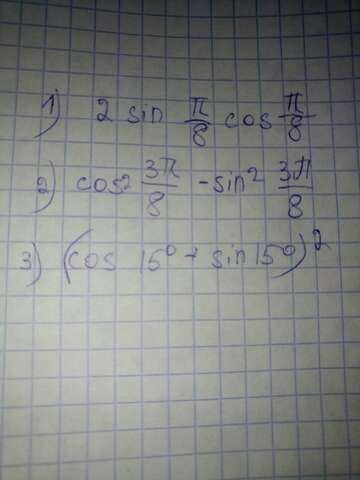 1) 2 sin π/8 cos π/8
2) cos² 3π/8 - sin² 3π/8
3) (cos 15° + sin 15°)²